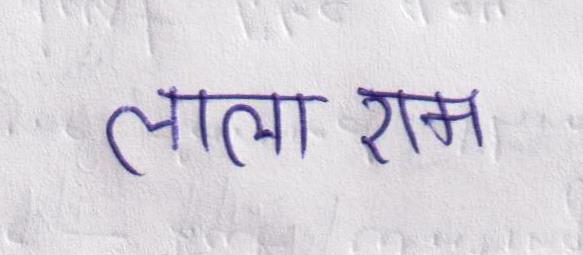 लाला राम